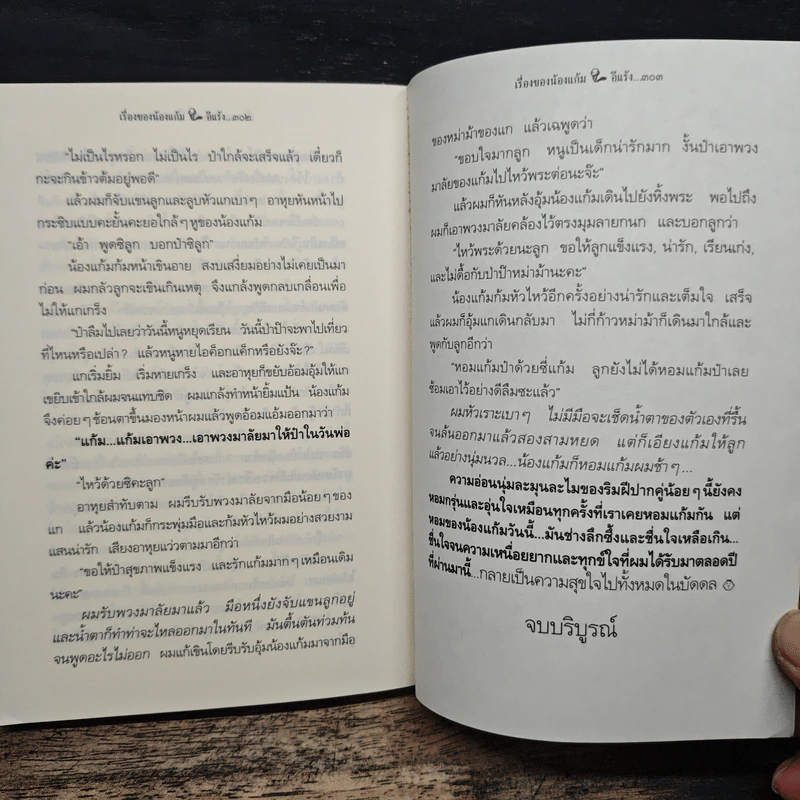 เรื่องของน้องแก้ม อีแร้ง...๓๐๒
"ไม่เป็นไรหรอก ไม่เป็นไร ป๋าใกล้จะเสร็จแล้ว เดี๋ยวก็
กะจะกินข้าวต้มอยู่พอดี"
แล้วผมก็จับแขนลูกและลูบหัวแกเบาๆ อาหุยหันหน้าไป
กระซิบแบบคะยั้นคะยอใกล้ๆ หูของน้องแก้ม
"เอ้า พูดซิลูก บอกป๋าซิลูก"
น้องแก้มก้มหน้าเขินอาย สงบเสงี่ยมอย่างไม่เคยเป็นมา
ก่อน ผมกลัวลูกจะเขินเกินเหตุ จึงแกล้งพูดกลบเกลื่อนเพื่อ
ไม่ให้แกเกร็ง
"ป๋าลืมไปเลยว่าวันนี้หนูหยุดเรียน วันนี้ป๋าป๊าจะพาไปเที่ยว
ที่ไหนหรือเปล่า? แล้วหนูหายไอค็อกแค็กหรือยังจ๊ะ?"
แกเริ่มยิ้ม เริ่มหายเกร็ง และอาหุยก็ขยับอ้อมอุ้มให้แก
เขยิบเข้าใกล้ผมจนแทบชิด ผมแกล้งทำหน้ายิ้มแป้น น้องแก้ม
จึงค่อยๆ ช้อนตาขึ้นมองหน้าผมแล้วพูดอ้อมแอ้มออกมาว่า
"แก้ม...แก้มเอาพวง...เอาพวงมาลัยมาให้ป๋าในวันพ่อ
ค่ะ"
"ไหว้ด้วยซิคะลูก"
อาหุยสำทับตาม ผมรีบรับพวงมาลัยจากมือน้อยๆ ของ
แก แล้วน้องแก้มก็กระพุ่มมือและก้มหัวไหว้ผมอย่างสวยงาม
แสนน่ารัก เสียงอาหุยแว่วตามมาอีกว่า
"ขอให้ป๋าสุขภาพแข็งแรง และรักแก้มมากๆ เหมือนเดิม
นะคะ"
ผมรับพวงมาลัยมาแล้ว มือหนึ่งยังจับแขนลูกอยู่
และน้ำตาก็ทำท่าจะไหลออกมาในทันที มันตื้นตันท่วมท้น
จนพูดอะไรไม่ออก ผมแก้เขินโดยรีบรับอุ้มน้องแก้มมาจากมือ
เรื่องของน้องแก้ม อีแร้ง...๓๐๓
ของหม่าม้าของแก แล้วเฉพูดว่า
"ขอบใจมากลูก หนูเป็นเด็กน่ารักมาก งั้นป๋าเอาพวง
มาลัยของแก้มไปไหว้พระต่อนะจ๊ะ"
แล้วผมก็หันหลังอุ้มน้องแก้มเดินไปยังหิ้งพระ พอไปถึง
ผมก็เอาพวงมาลัยคล้องไว้ตรงมุมลายกนก และบอกลูกว่า
"ไหว้พระด้วยนะลูก ขอให้ลูกแข็งแรง, น่ารัก, เรียนเก่ง,
และไม่ดื้อกับป๋าป๊าหม่าม้านะคะ"
น้องแก้มก้มหัวไหว้อีกครั้งอย่างน่ารักและเต็มใจ เสร็จ
แล้วผมก็อุ้มแกเดินกลับมา ไม่กี่ก้าวหม่าม้าก็เดินมาใกล้และ
พูดกับลูกอีกว่า
"หอมแก้มป๋าด้วยซี่แก้ม ลูกยังไม่ได้หอมแก้มป๋าเลย
ซ้อมเอาไว้อย่างดีลืมซะแล้ว"
ผมหัวเราะเบาๆ ไม่มีมือจะเช็ดน้ำตาของตัวเองที่รื้น
จนล้นออกมาแล้วสองสามหยด แต่ก็เอียงแก้มให้ลูก
แล้วอย่างนุ่มนวล...น้องแก้มก็หอมแก้มผมช้าๆ...
ความอ่อนนุ่มละมุนละไมของริมฝีปากคู่น้อยๆ นี้ยังคง
หอมกรุ่นและอุ่นใจเหมือนทุกครั้งที่เราเคยหอมแก้มกัน แต่
หอมของน้องแก้มวันนี้...มันช่างลึกซึ้งและชื่นใจเหลือเกิน...
ชื่นใจจนความเหนื่อยยากและทุกข์ใจที่ผมได้รับมาตลอดปี
ที่ผ่านมานี้...กลายเป็นความสุขใจไปทั้งหมดในบัดดล
จบบริบูรณ์